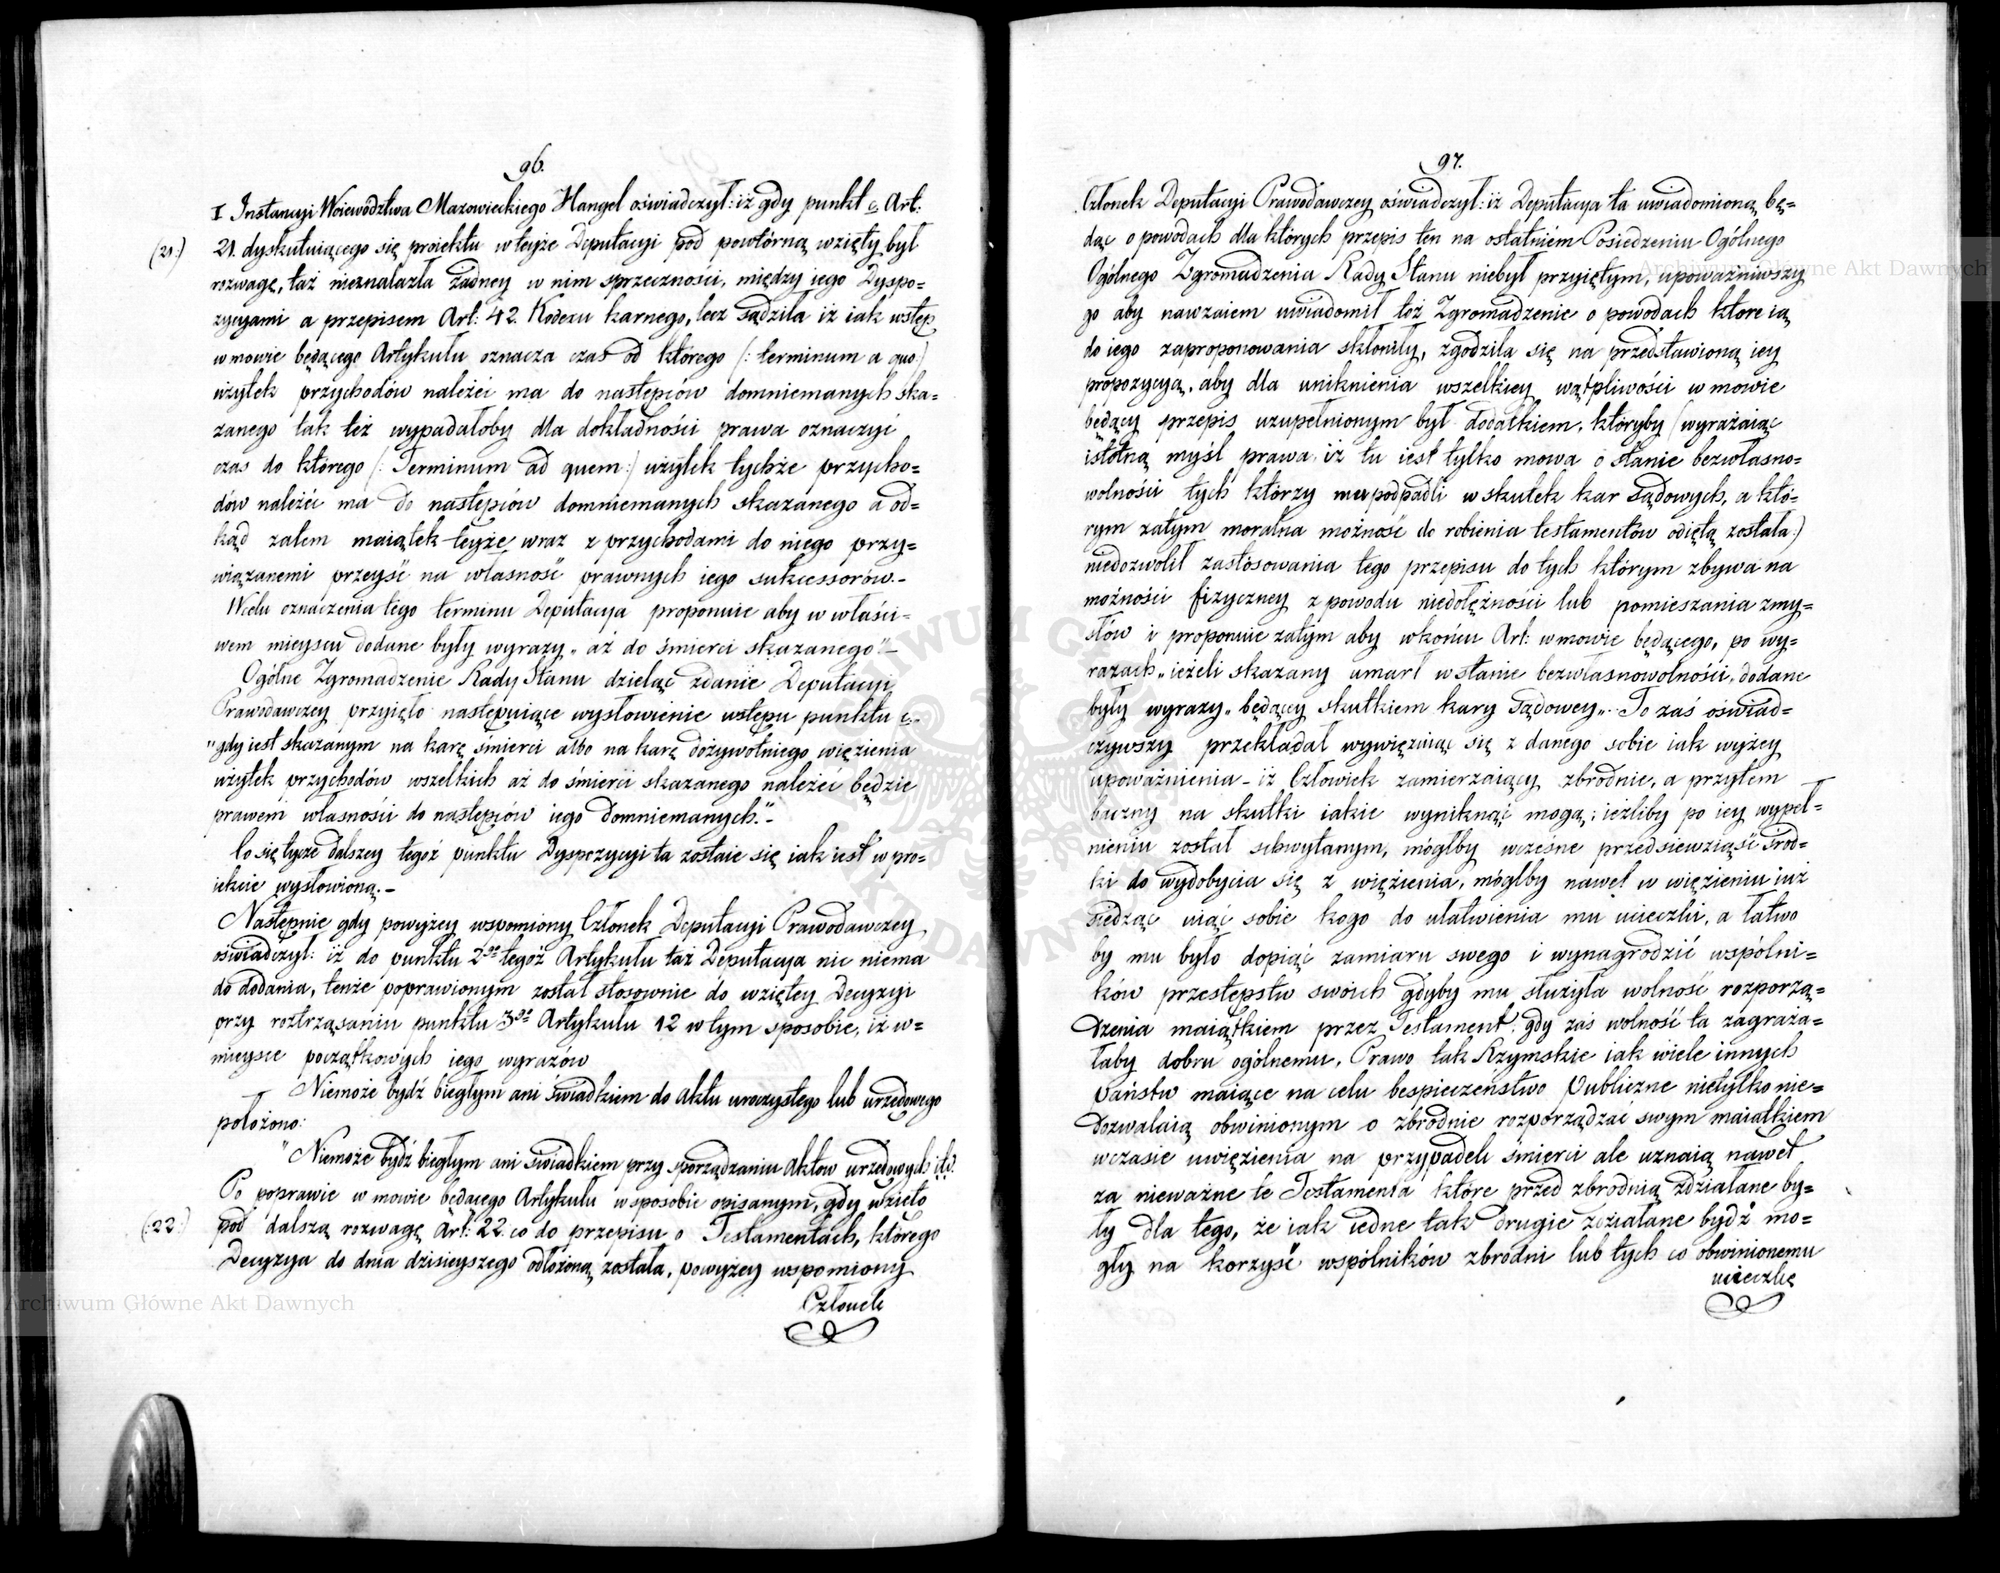 96.
I Instancyi Woiewództwa Mazowieckiego Hangel oświadczył: iż gdy punkt c Art:
(21:) 21. dyskutuiącego się proiektu w teyże Deputacyi pod powtórną wzięty był
rozwagę, taż nieznalazła żadney w nim sprzeczności, między iego Dyspo=
zycyami a przepisem Art: 42. Kodexu karnego, lecz sądziła iż iak wstęp
w mowie będącego Artykułu oznacza czas od którego (: terminum a quo:)
użytek przychodów należeć ma do następców domniemanych ska=
zanego tak też wypadałoby dla dokładności prawa oznaczyć
czas do którego (: Terminum ad quem:) użytek tychże przycho=
dów należeć ma do następców domniemanych skazanego a od=
kąd zatem maiątek tegże wraz z przychodami do niego przy=
wiązanemi przeyść na własność prawnych iego sukcessorów.-
W celu oznaczenia tego terminu Deputacya proponuie aby w właści=
wem mieyscu dodane były wyrazy „aż do śmierci skazanego"-
Ogólne Zgromadzenie Rady Stanu dzieląc zdanie Deputacyi
Prawodawczey przyięło następuiące wysłowienie wstępu punktu c.-
"gdy iest skazanym na karę śmierci albo na karę dożywotniego więzienia
użytek przychodów wszelkich aż do śmierci skazanego należeć będzie
prawem własności do następców iego domniemanych."-
Co się tycze dalszey tegoż punktu Dyspozycyi ta zostaie się iak iest w pro=
iekcie wysłowioną.-
Następnie gdy powyżey wspomiony Członek Deputacyi Prawodawczey
oświadczył: iż do punktu 2go tegoż Artykułu taż Deputacya nic niema
do dodania, tenże poprawionym został stosownie do wziętey Decyzyi
przy roztrząsaniu punktu 3go Artykułu 12 w tym sposobie, iż w=
mieysce początkowych iego wyrazów
Niemoże bydź biegłym ani świadkiem do Aktu uroczystego lub urzędowego
położono:
"Niemoże bydź biegłym ani świadkiem przy sporządzaniu Aktów urzędowych itd.
Po poprawie w mowie będącego Artykułu w sposobie opisanym, gdy wzięto
(:22:) pod dalszą rozwagę Art: 22. co do przepisu o Testamentach, którego
Decyzya do dnia dzisieyszego odłożoną została, powyżey wspomiony
Członek
97.
Członek Deputacyi Prawodawczey oświadczył: iż Deputacya ta uwiadomioną bę=
dąc o powodach dla których przepis ten na ostatniem Posiedzeniu Ogólnego
Ogólnego Zgromadzenia Rady Stanu niebył przyiętym, upoważniwszy
go aby nawzaiem uwiadomił też Zgromadzenie o powodach które ią
do iego zaproponowania skłoniły, zgodziła się na przedstawioną iey
propozycyą, aby dla uniknienia wszelkiey wątpliwości w mowie
będący przepis uzupełnionym był dodatkiem, któryby (wyrażaiąc
istotną myśl prawa iż tu iest tylko mowa o stanie bezwłasno=
wolności tych którzy weń podpadli w skutek kar sądowych, a któ=
rym zatym moralna możność do robienia testamentów odiętą została:)
niedozwolił zastósowania tego przepisu do tych którym zbywa na
możności fizyczney z powodu niedołężności lub pomieszania zmy=
słów i proponuie zatym aby w końcu Art: w mowie będącego, po wy=
razach „ieżeli skazany umarł w stanie bezwłasnowolności, dodane
były wyrazy „będący skutkiem kary sądowey„. To zaś oświad=
czywszy przekładał wywięzuiąc się z danego sobie iak wyżey
upoważnienia - iż Człowiek zamierzaiący zbrodnie, a przytem
baczny na skutki iakie wyniknąć mogą; ieżliby po iey wypeł=
nieniu został schwytanym, mógłby wcześne przedsiewziąść środ=
ki do wydobycia się z więzienia, mógłby nawet w więzieniu iuż
siedząc uiąć sobie kogo do ułatwienia mu ucieczki, a łatwo
by mu było dopiąć zamiaru swego i wynagrodzić wspólni=
ków przestępstw swoich gdyby mu służyła wolność rozporzą=
dzenia maiątkiem przez Testament: gdy zaś wolność ta zagraża=
łaby dobru ogólnemu, Prawo tak Rzymskie iak wiele innych
Państw maiące na celu bespieczeństwo Publiczne nietylko nie=
dozwalaią obwinionym o zbrodnie rozporządzać swym maiątkiem
wczasie uwięzienia na przypadek śmierci ale uznaią nawet
za nieważne te Testamenta które przed zbrodnią zdziałane by=
ły dla tego, że iak iedne tak drugie zdziałane bydź mo=
gły na korzyść wspólników zbrodni lub tych co obwinionemu
ucieczkę
Archiwum Główne Akt Dawnych
Archiwum Główne Akt Dawnych
ARCHIWUM GŁÓWNE AKT DAWNYCH